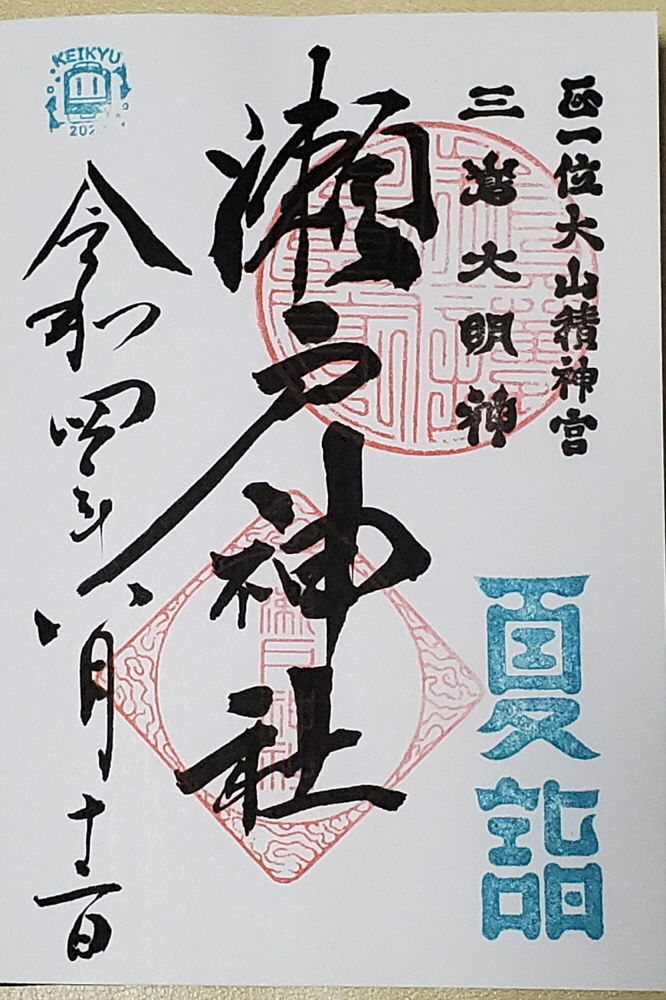 正一位大山積神宮
三嶌大明神
夏詣
瀬戸神社
瀬戸神社
令和四年八月十二日
KEIKYU